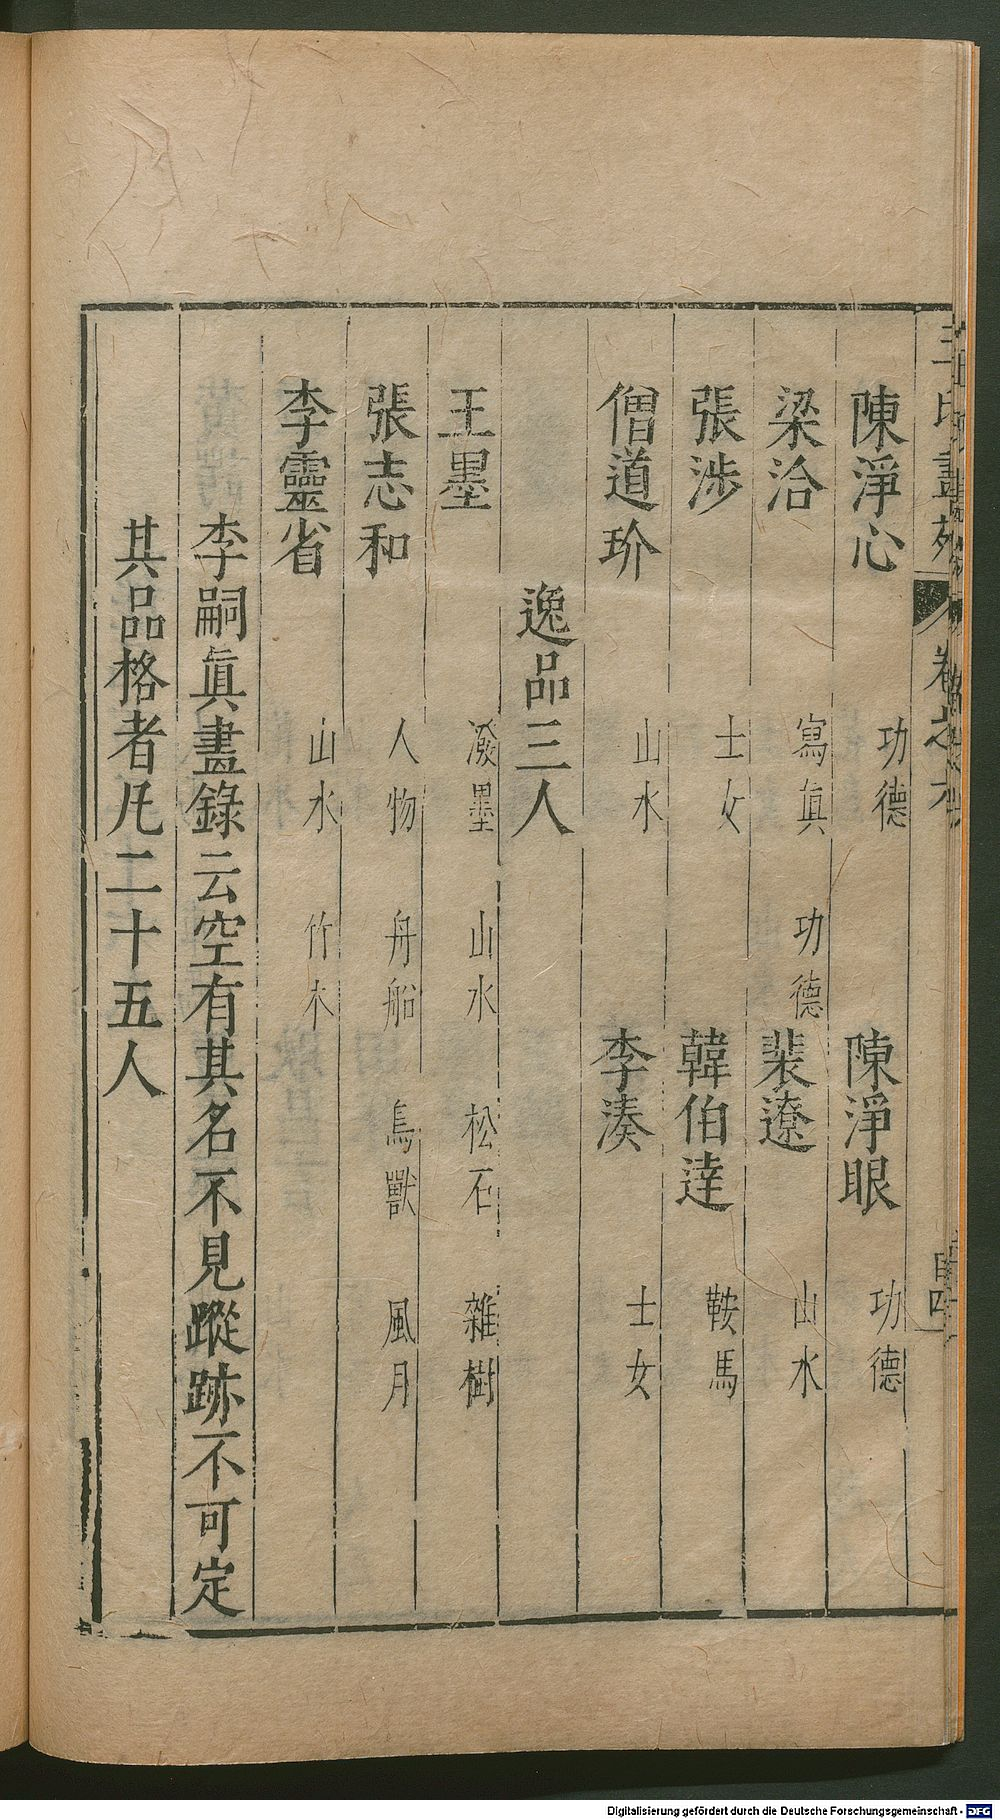 陳淨心 功德 陳淨眼 功德
梁洽 寫眞 功德 裴遼 山水
張涉 士女 韓伯達 鞍馬
僧道玠 山水 李湊 士女
逸品三人
王墨 潑墨 山水 松石 雜樹
張志和 人物 舟船 鳥獸 風月
李靈省 山水 竹木
李嗣眞畫錄云空有其名不見蹤跡不可定
其品格者凡二十五人
Digitalisierung gefördert durch die Deutsche Forschungsgemeinschaft - DFG